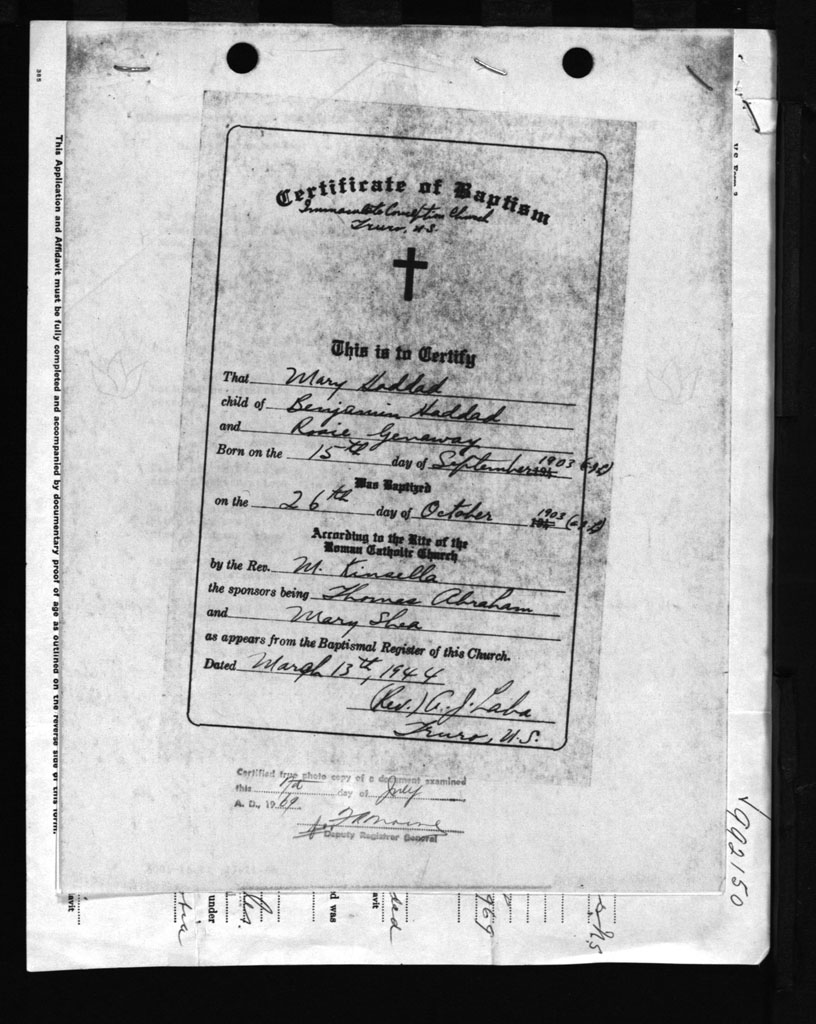 Certificate of Baptism
Immaculate Conception Church
Truro, N.S.
This is to Certify
That Mary Haddad
child of Benjamin Haddad
and Rosie Genaway
Born on the 15th day of September 1903
Was Baptized
on the 26th day of October 1903
According to the Rite of the
Roman Catholic Church
by the Rev. M. Kinsella
the sponsors being Thomas Abraham
and Mary Shea
as appears from the Baptismal Register of this Church.
Dated March 13th, 1944
(Rev.) A. J. Laba
Truro, N.S.
Certified true photo copy of a document examined
this day of July
A. D., 1969
Deputy Registrar General
This Application and Affidavit must be fully completed and accompanied by documentary proof of age as outlined on the reverse side of this form.
385
992150
avit
under
d was
avit
dad
969